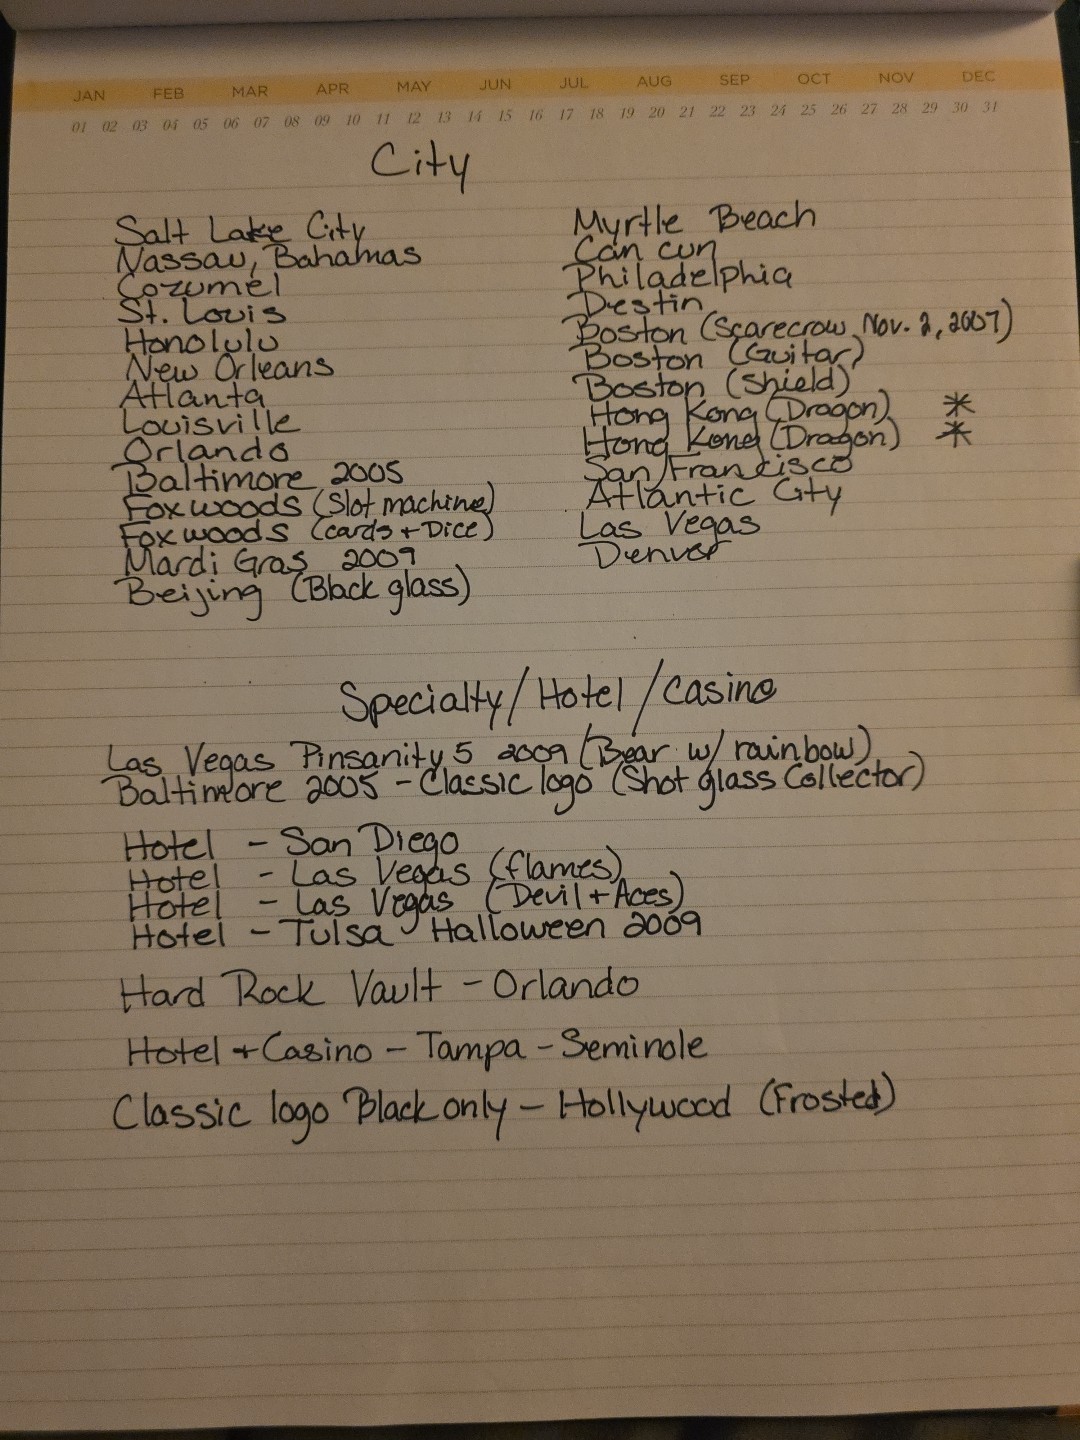 JAN FEB MAR APR MAY JUN JUL AUG SEP OCT NOV DEC
01 02 03 04 05 06 07 08 09 10 11 12 13 14 15 16 17 18 19 20 21 22 23 24 25 26 27 28 29 30 31
City
Salt Lake City
Nassau, Bahamas
Cozumel
St. Louis
Honolulu
New Orleans
Atlanta
Louisville
Orlando
Baltimore 2005
Foxwoods (Slot machine)
Foxwoods (cards + Dice)
Mardi Gras 2009
Beijing (Black glass)
Myrtle Beach
Can cun
Philadelphia
Destin
Boston (Scarecrow Nov. 2, 2007)
Boston (Guitar)
Boston (Shield)
Hong Kong (Dragon) *
Hong Kong (Dragon) *
San Francisco
Atlantic City
Las Vegas
Denver
Specialty/Hotel/Casino
Las Vegas Pinsanity 5 2009 (Bear w/ rainbow)
Baltimore 2005 - Classic logo (Shot glass Collector)
Hotel - San Diego
Hotel - Las Vegas (flames)
Hotel - Las Vegas (Devil + Aces)
Hotel - Tulsa Halloween 2009
Hard Rock Vault - Orlando
Hotel + Casino - Tampa - Seminole
Classic logo Black only - Hollywood (Frosted)